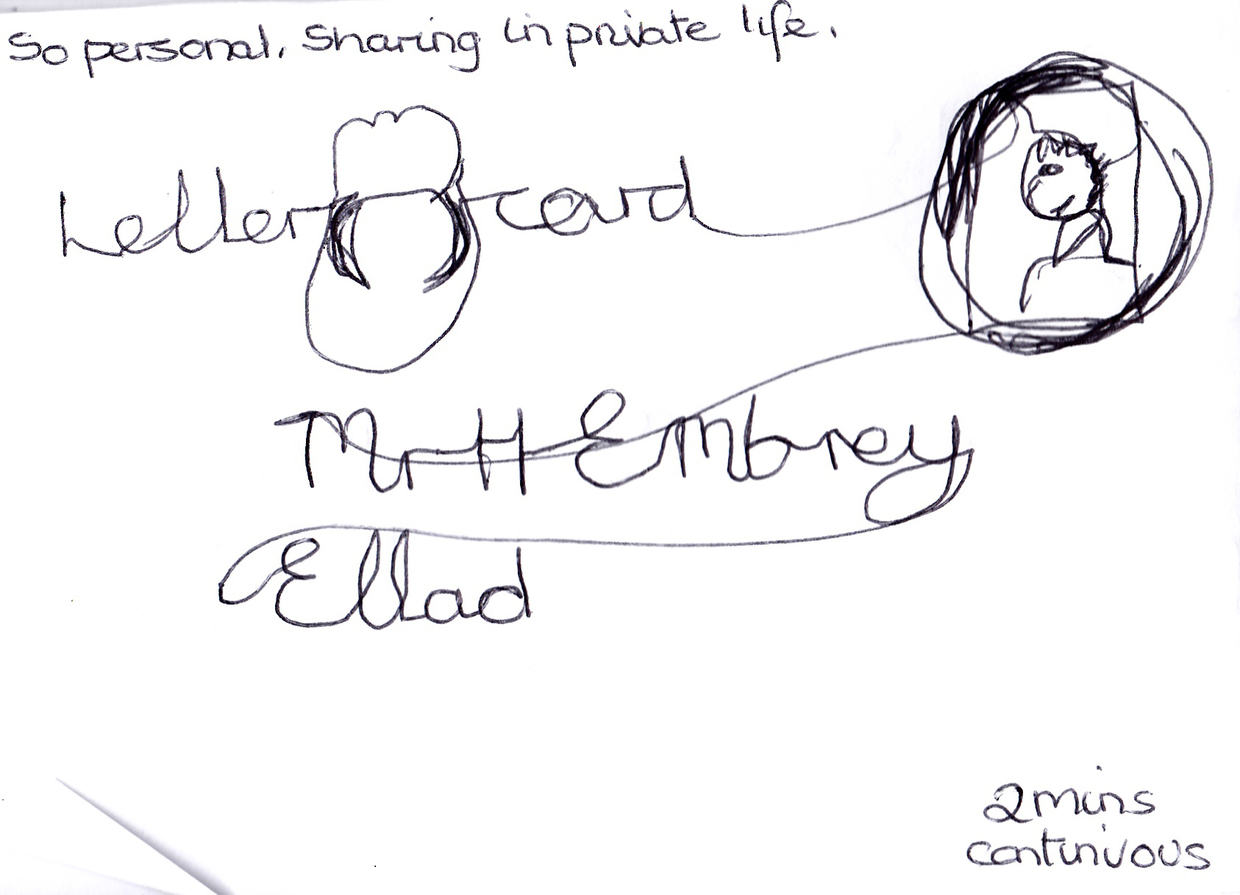 So personal. Sharing in private life.
Letter card
Mr H Embrey
Ellad
2 mins
continuous